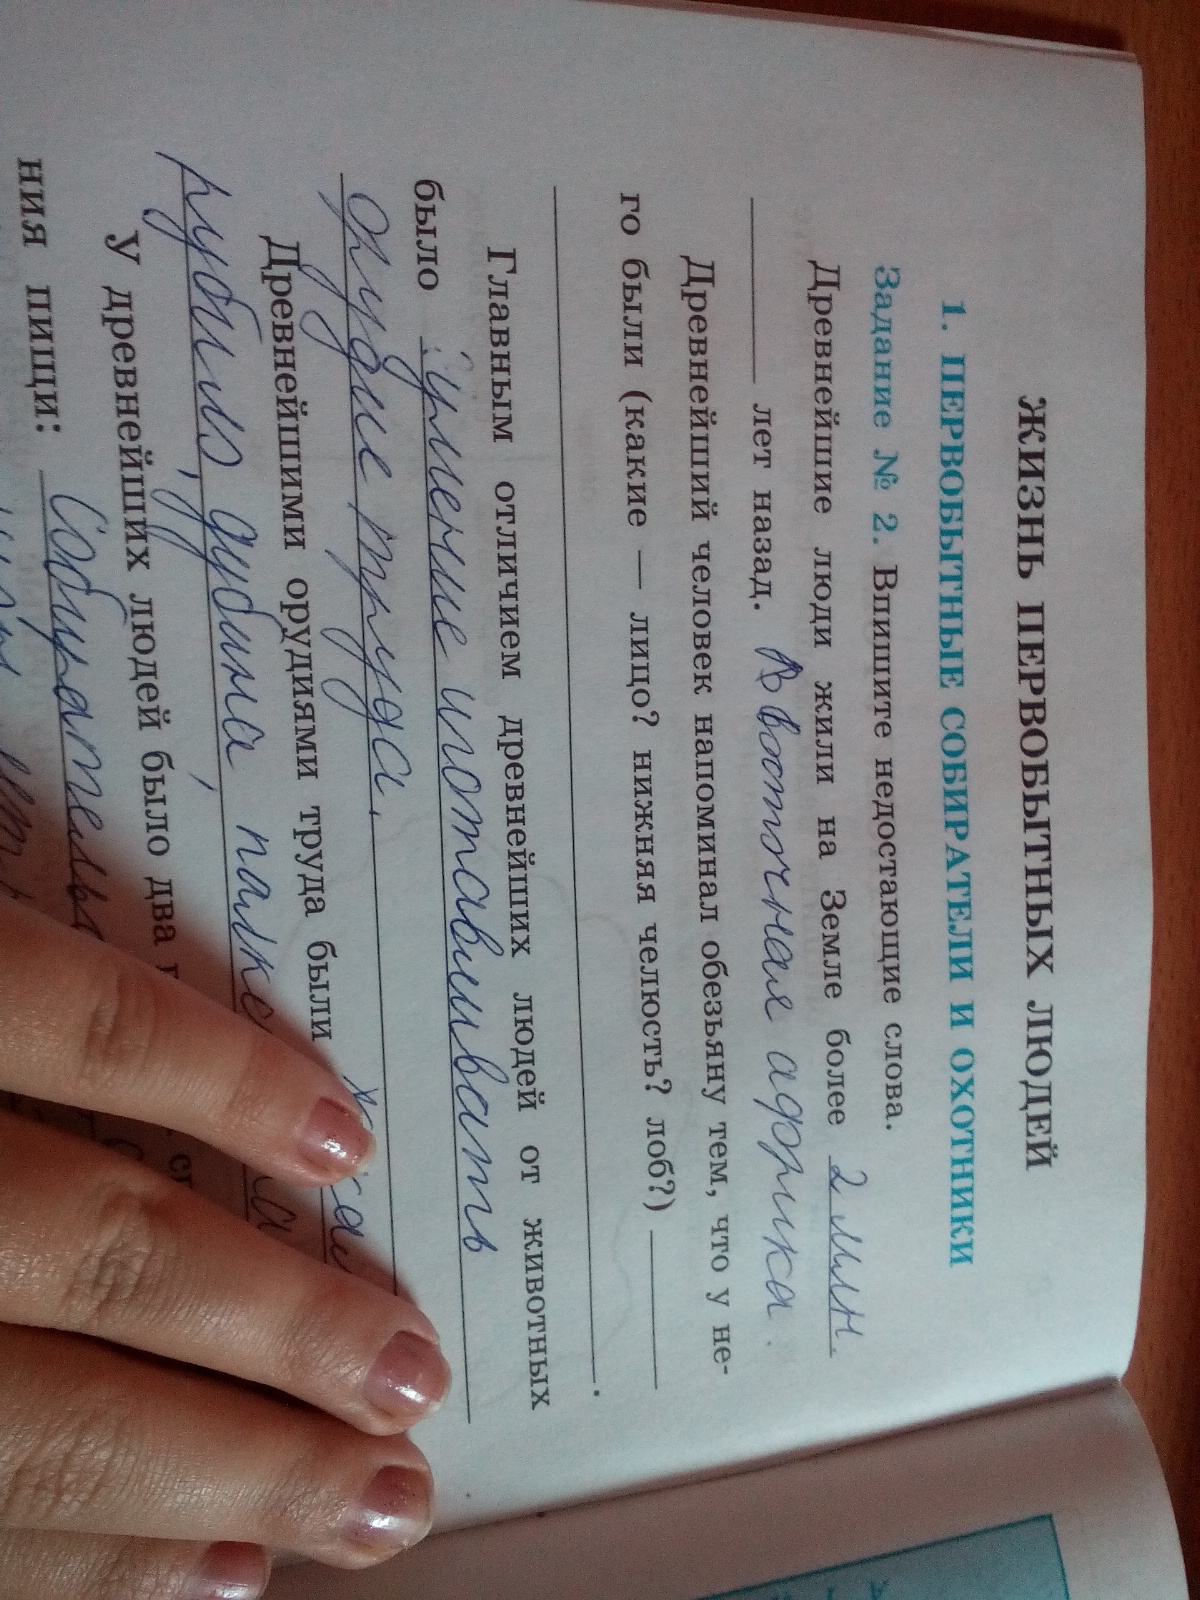 ЖИЗНЬ ПЕРВОБЫТНЫХ ЛЮДЕЙ
1. ПЕРВОБЫТНЫЕ СОБИРАТЕЛИ И ОХОТНИКИ
Задание № 2. Впишите недостающие слова.
Древнейшие люди жили на Земле более 2 млн.
лет назад. Восточная африка.
Древнейший человек напоминал обезьяну тем, что у не-
го были (какие — лицо? нижняя челюсть? лоб?)
.
Главным отличием древнейших людей от животных
было: умение изготавливать
орудие труда.
Древнейшими орудиями труда были
рубило, дубина,
У древнейших людей было два
ния пищи: